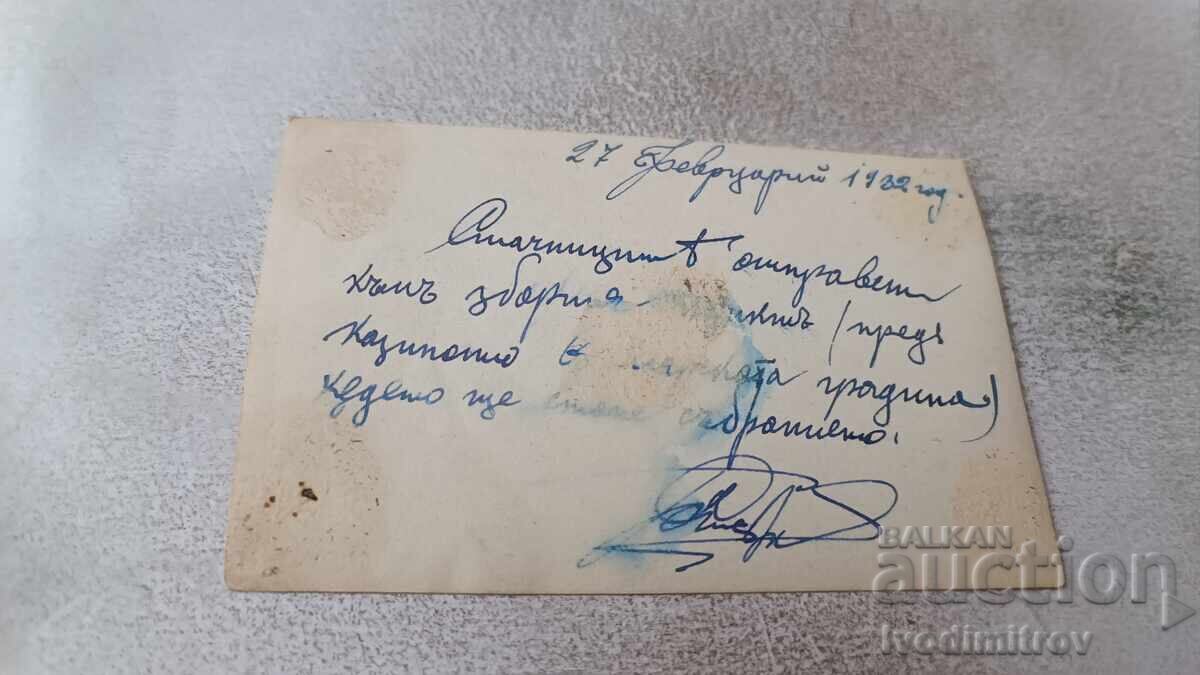 27 Февруарий 1932 год.
Стачницитѣ отправени
къмъ зборния пункть (предъ
казиното въ градина)
кѫдето ще стане събранието.
BALKAN
auction
ivodimitrov